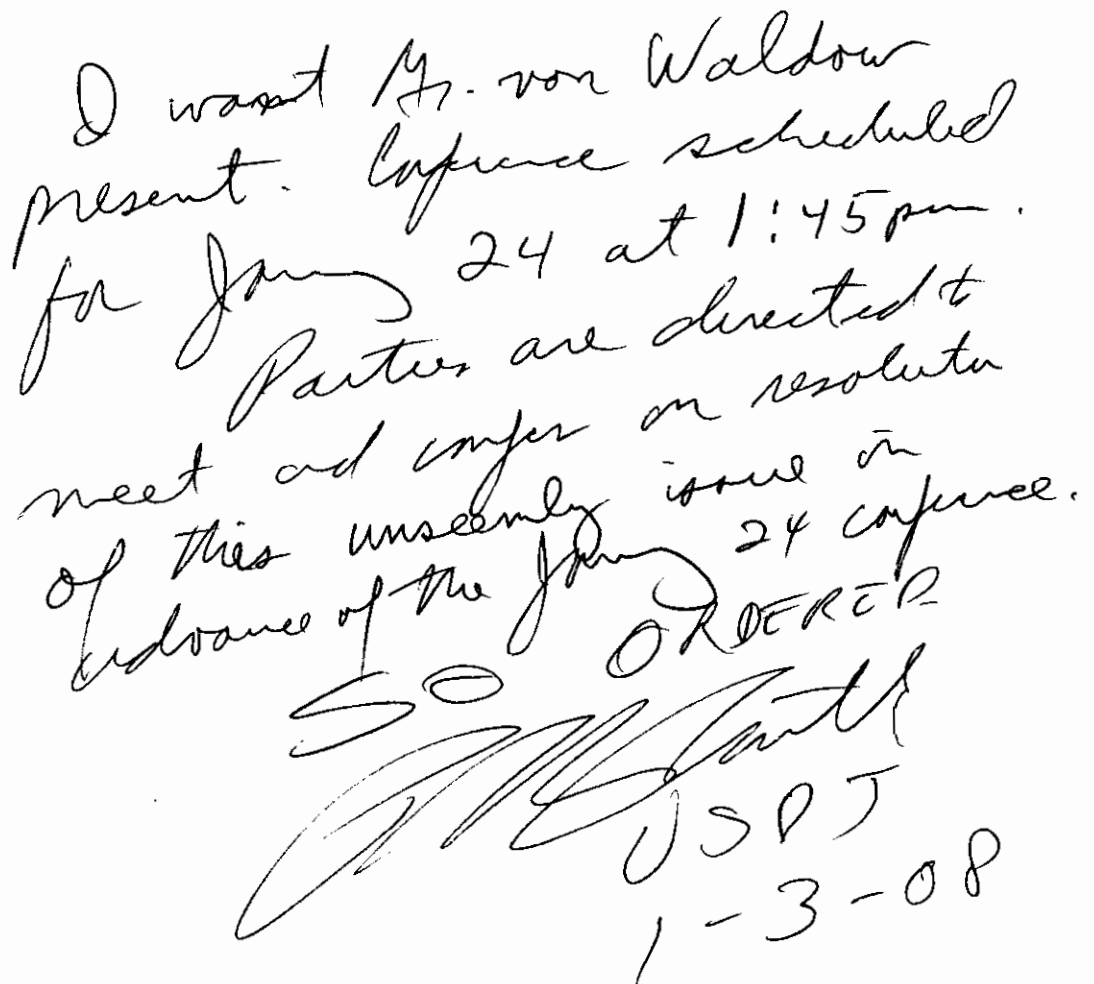 I want Mr. von Waldow
present. Conference scheduled
for January 24 at 1:45 pm.
Parties are directed to
meet and confer on resolution
of this unseemly issue in
advance of the January 24 conference.
SO ORDERED
USDJ
1-3-08